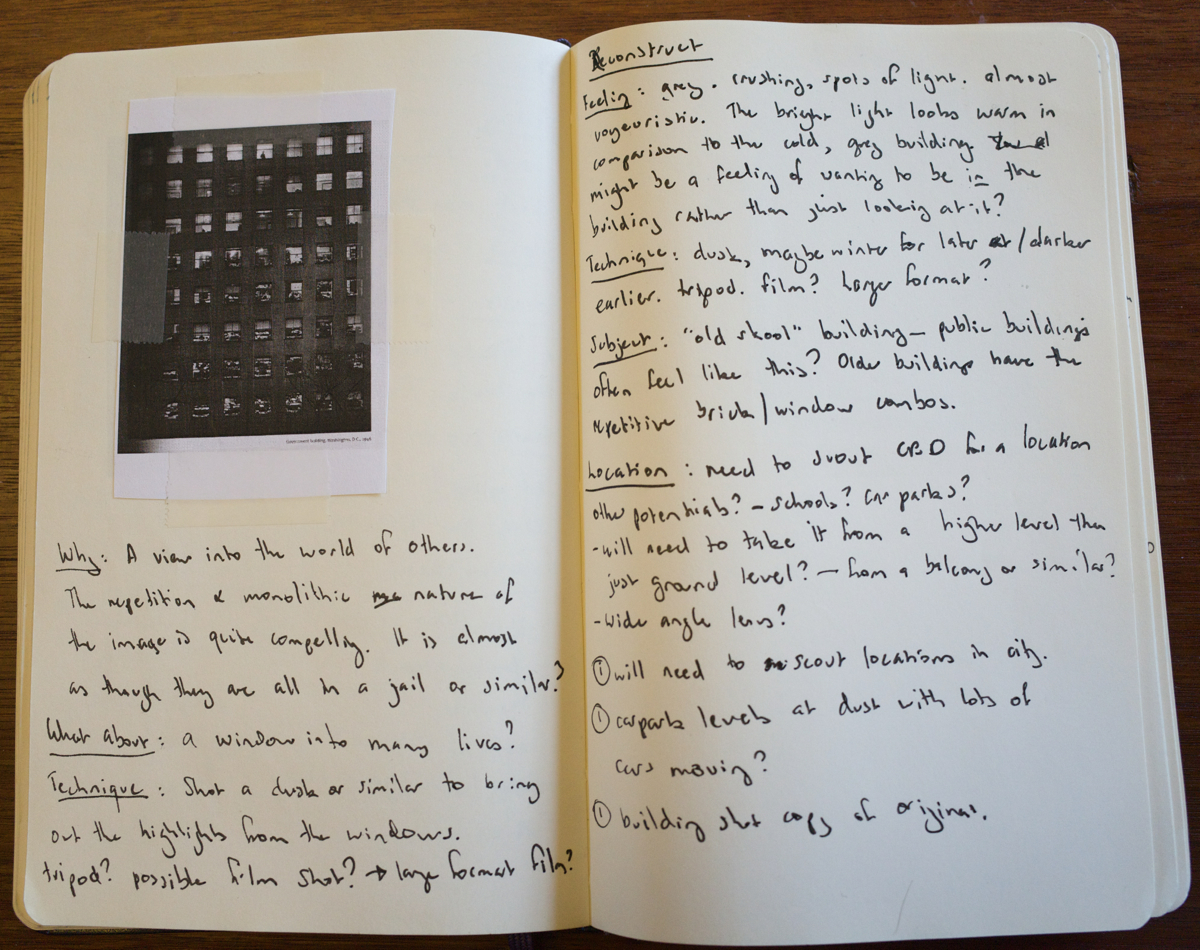 Government building, Washington, D.C., 1956
Why: A view into the world of others.
The repetition & monolithic nature of
the image is quite compelling. It is almost
as though they are all in a jail or similar?
What About: a window into many lives?
Technique: Shot a dusk or similar to bring
out the highlights from the windows.
tripod? possible film shot? → large format film?
Reconstruct
Feeling: grey. crushing, spots of light. almost
voyeuristic. The bright light looks warm in
comparison to the cold, grey building.
might be a feeling of wanting to be in the
building rather than just looking at it?
Technique: dusk, maybe winter for later /darker
earlier. tripod. film? Larger format?
Subject: "old skool" building - public buildings
often feel like this? Older buildings have the
repetitive brick/window combos.
Location: need to scout CBD for a location
other potentials? - schools? Car parks?
- will need to take it from a higher level than
just ground level? - from a balcony or similar?
- wide angle lens?
① will need to scout locations in city.
① carpark levels at dusk with lots of
cars moving?
① building shot copy of original.